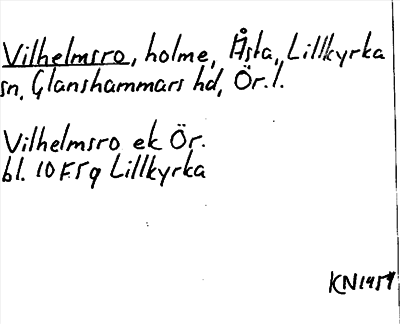 Vilhelmsro, holme, Åsta, Lillkyrka
sn, Glanshammars hd, Ör.l.
Vilhelmsro ek Ör.
bl. 10F5g Lillkyrka